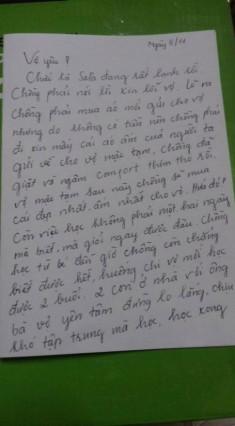 Ngày 5/11
Vợ yêu !
Chắc là Sala đang rất lạnh rồi
Chồng phải nói lời xin lỗi vợ. Lẽ ra
Chồng phải mua áo mới gửi cho vợ
nhưng do không có tiền nên chồng phải
đi xin mấy cái áo ấm của người ta
gửi về cho vợ mặc tạm. Chồng đã
giặt và ngâm comfort thơm tho rồi.
vợ mặc tạm sau này chồng sẽ mua
cái đẹp nhất, ấm nhất cho vợ. Hứa đó!
Còn việc học không phải một, hai ngày
mà biết, mà giỏi ngay được đâu. Chồng
học từ bé đến giờ chồng còn chẳng
biết được hết, huống chi vợ mới học
được 2 buổi. 2 con ở nhà với ông
bà vợ yên tâm đừng lo lắng, chịu
khó tập trung mà học, học xong